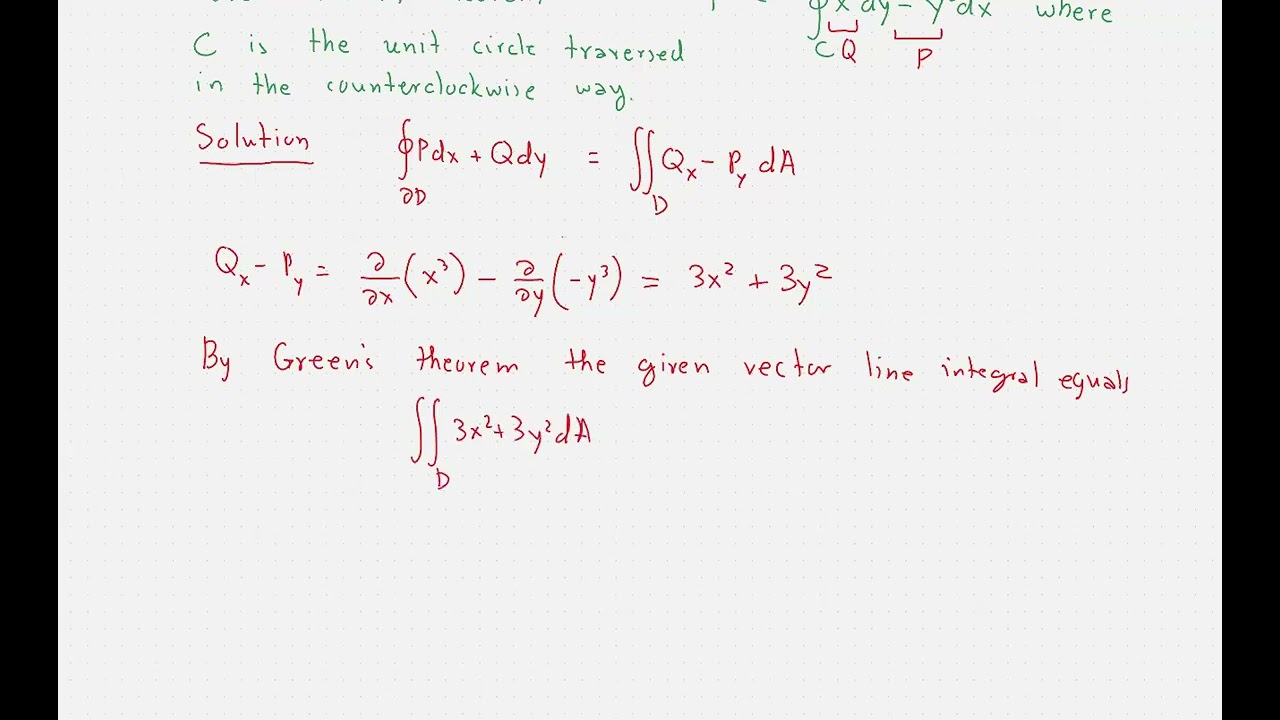 ∮x dy − y dx where
C is the unit circle traversed C Q P
in the counterclockwise way.
Solution ∮Pdx + Qdy = ∬Qₓ − P_y dA
∂D D
Qₓ − P_y = ∂/∂x (x³) − ∂/∂y (−y³) = 3x² + 3y²
By Green's theorem the given vector line integral equals
∬ 3x²+3y² dA
D